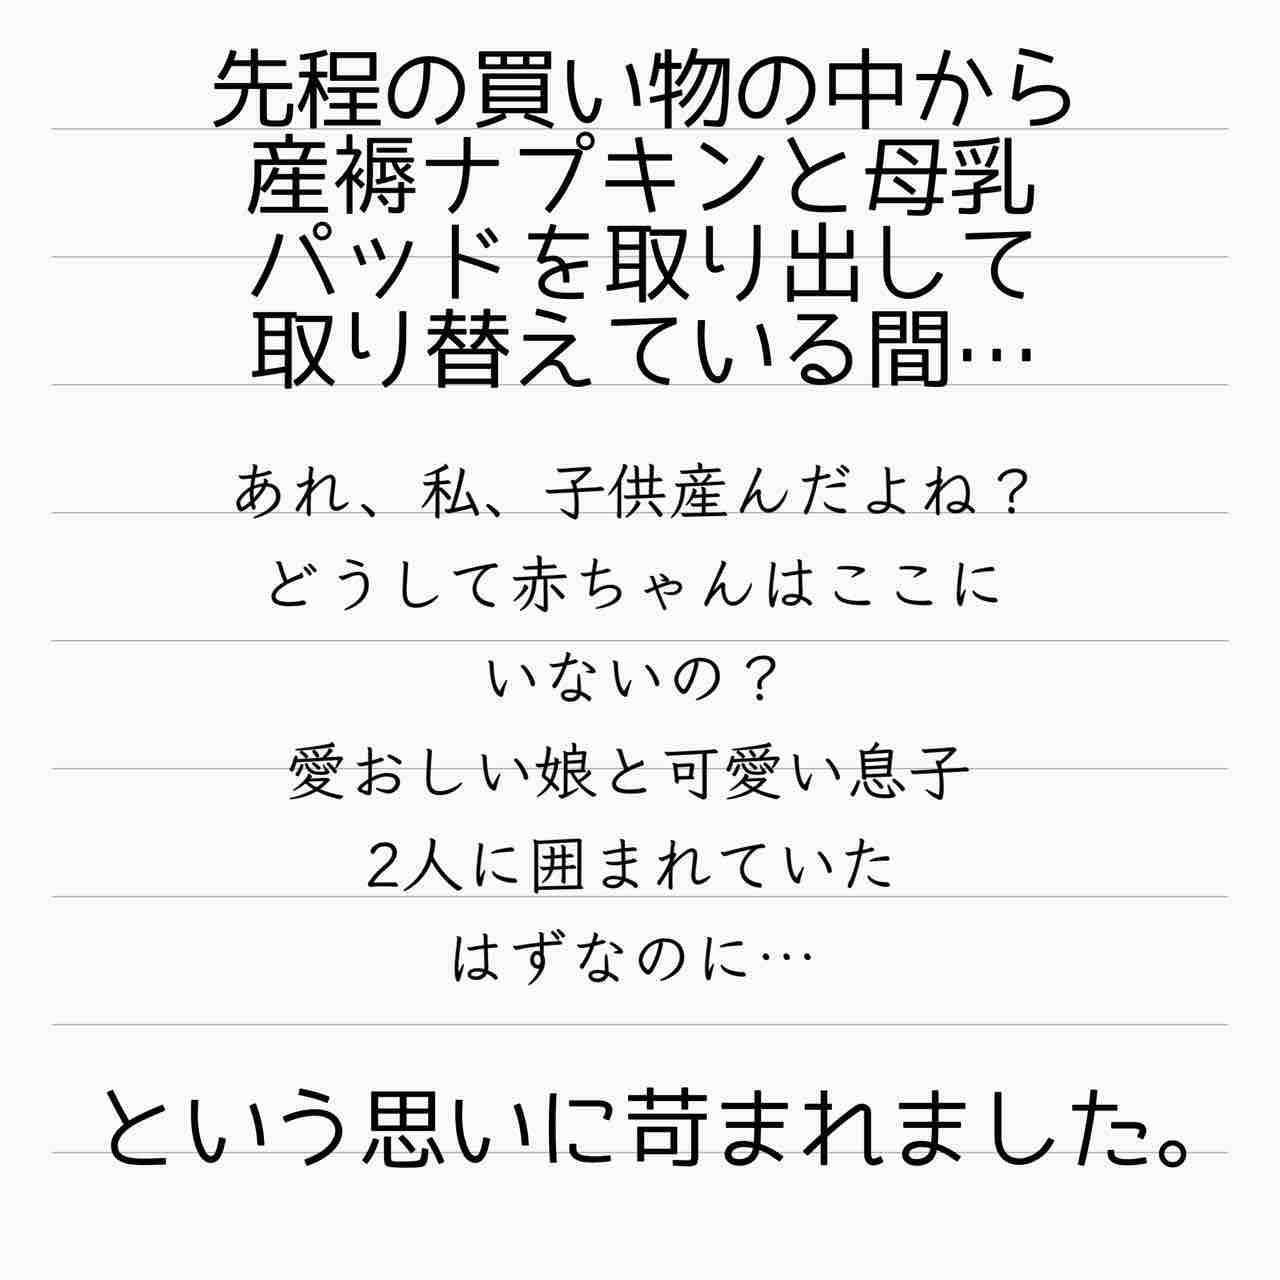 先程の買い物の中から
産褥ナプキンと母乳
パッドを取り出して
取り替えている間…
あれ、私、子供産んだよね？
どうして赤ちゃんはここに
いないの？
愛おしい娘と可愛い息子
2人に囲まれていた
はずなのに…
という思いに苛まれました。